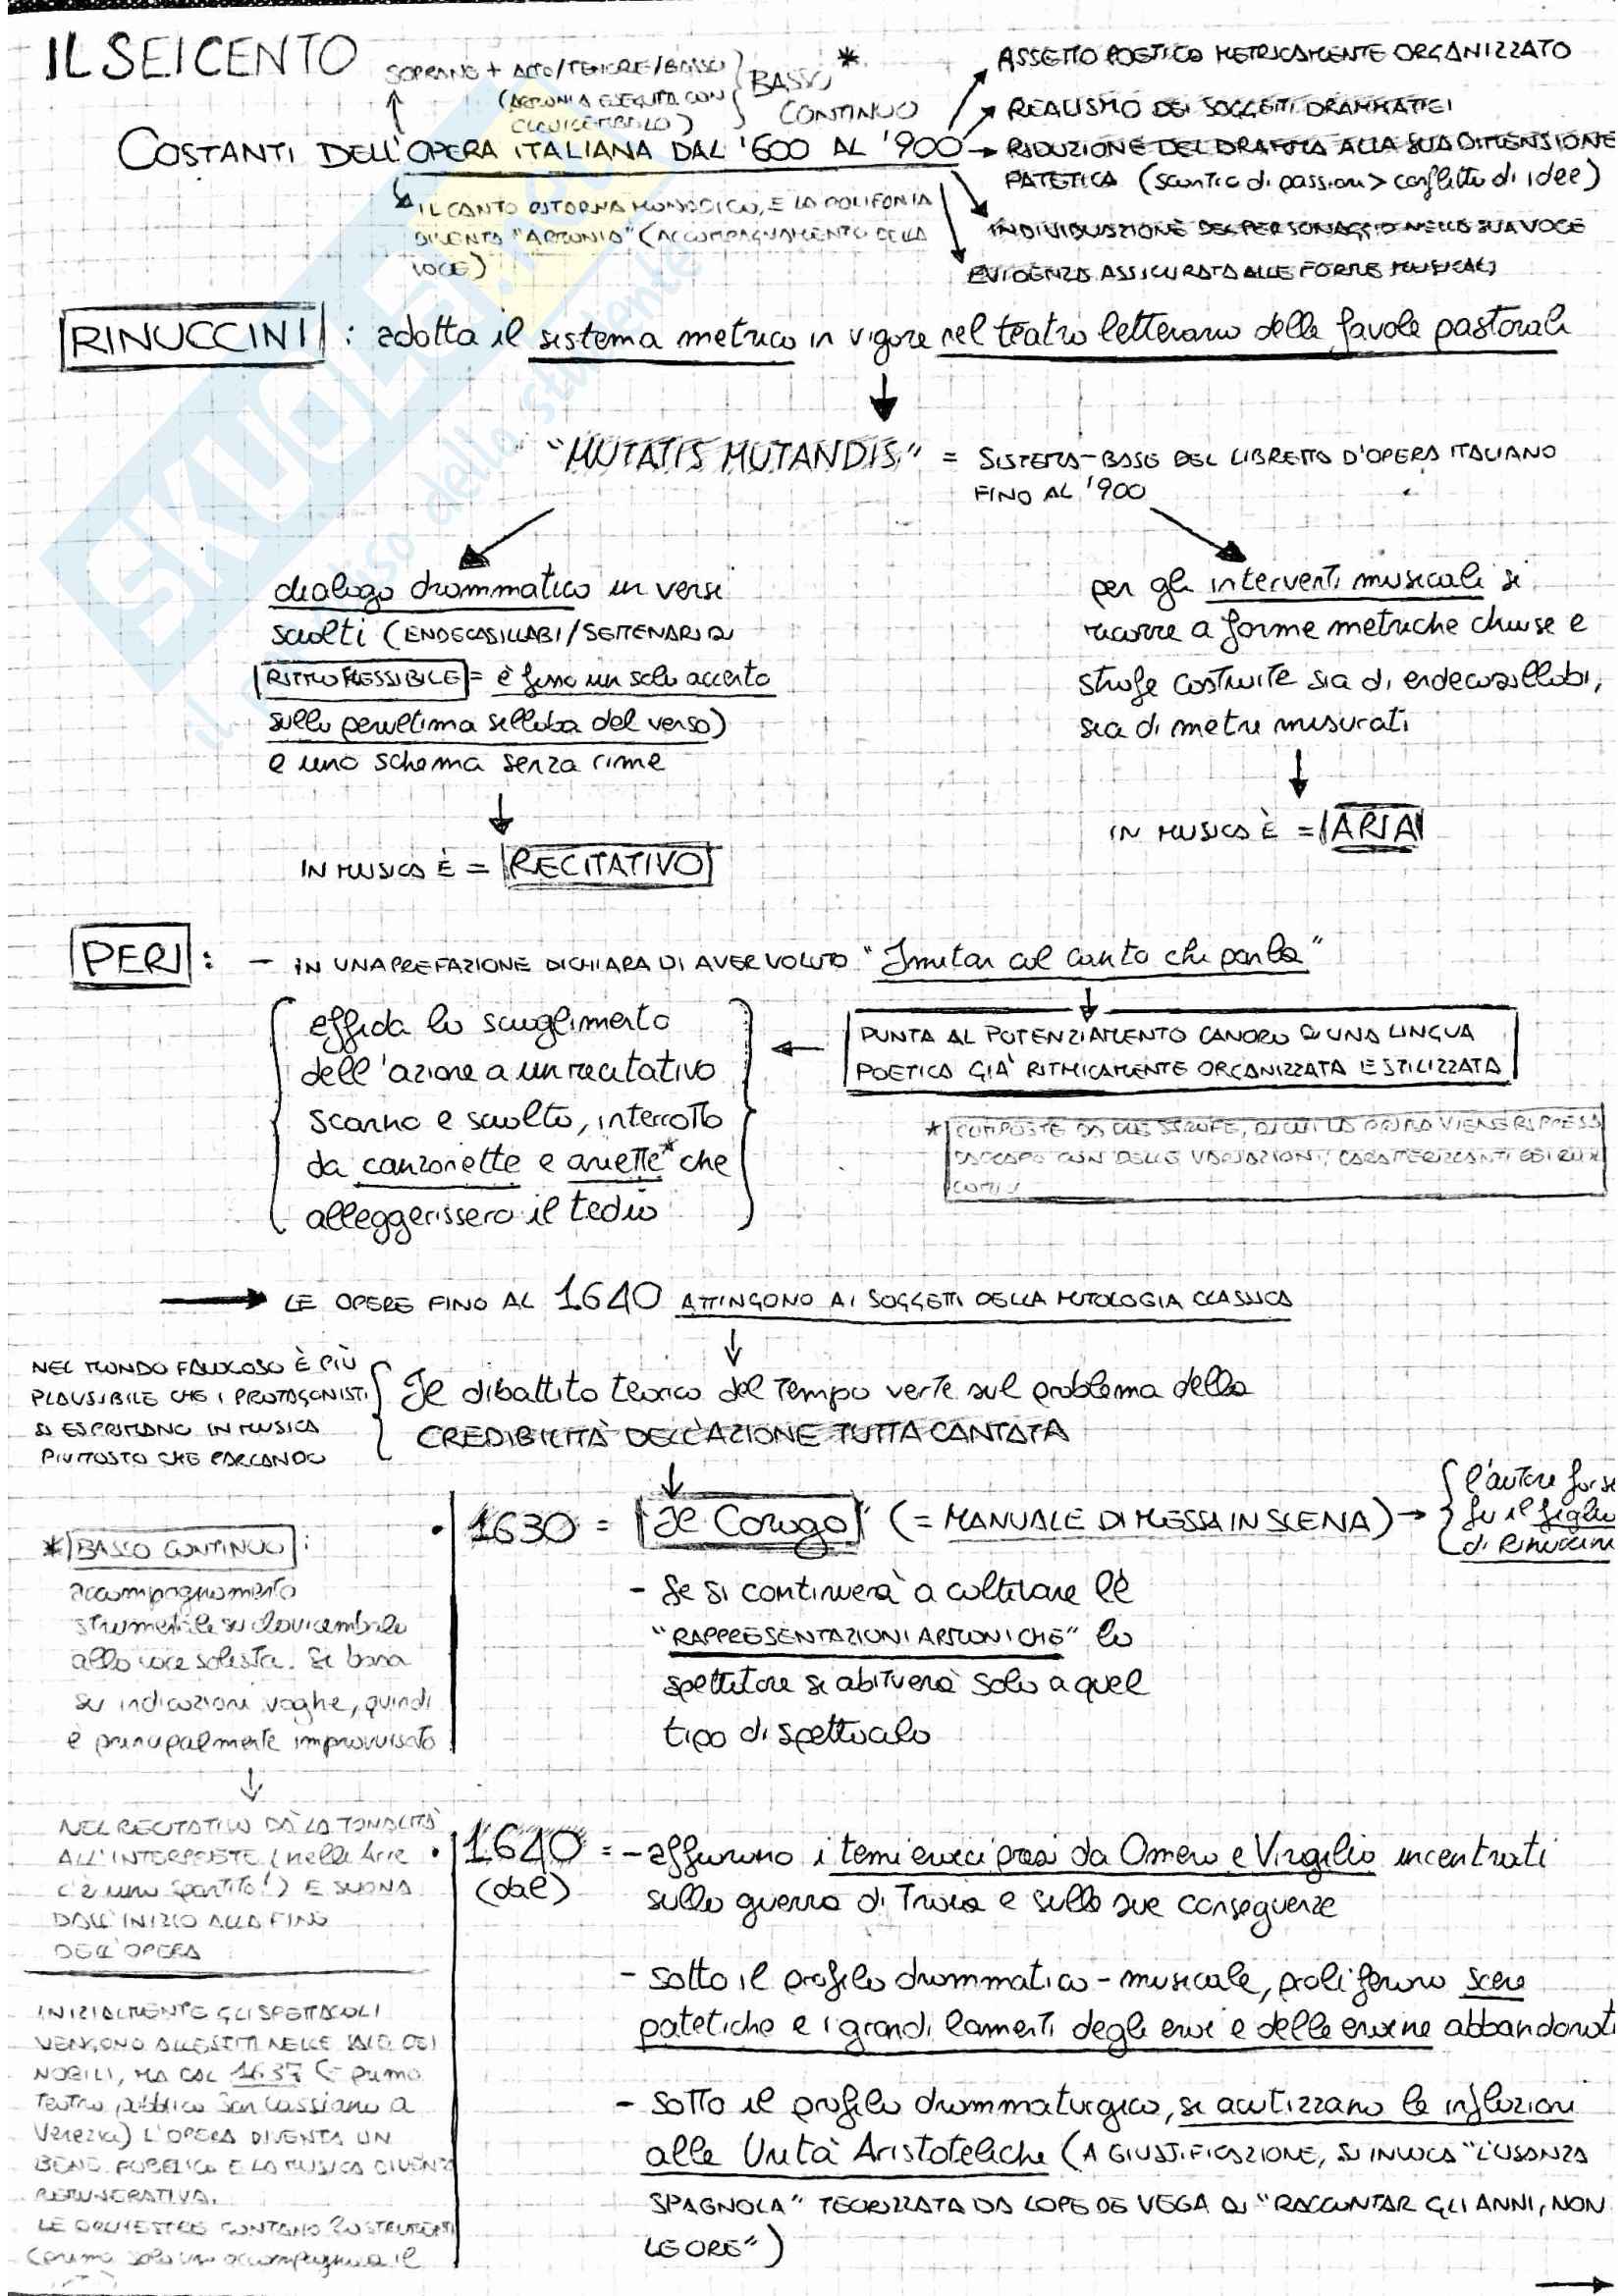 IL SEICENTO
SOPRANO + ALTO/TENORE/BASSO
(ARMONIA ESEGUITA CON
CLAVICEMBALO)
BASSO *
CONTINUO
COSTANTI DELL'OPERA ITALIANA DAL '600 AL '900
ASSETTO POETICO METRICAMENTE ORGANIZZATO
REALISMO DEI SOGGETTI DRAMMATICI
RIDUZIONE DEL DRAMMA ALLA SUA DIMENSIONE
PATETICA (scontro di passioni > conflitto di idee)
INDIVIDUAZIONE DEL PERSONAGGIO NELLA SUA VOCE
EVIDENZA ASSICURATA ALLE FORME MUSICALI
IL CANTO RITORNA MONODICO, E LA POLIFONIA
DIVENTA "ARMONIA" (ACCOMPAGNAMENTO DELLA
VOCE)
RINUCCINI : adotta il sistema metrico in vigore nel teatro letterario delle favole pastorali
"MUTATIS MUTANDIS" = SISTEMA-BASE DEL LIBRETTO D'OPERA ITALIANO
FINO AL '900
dialogo drammatico in versi
sciolti (ENDECASILLABI/SETTENARI DI
RITMO FLESSIBILE = è fisso un solo accento
sulla penultima sillaba del verso)
e uno schema senza rime
IN MUSICA È = RECITATIVO
per gli interventi musicali si
ricorre a forme metriche chiuse e
strofe costruite sia di endecasillabi,
sia di metri misurati
IN MUSICA È = ARIA
PERI : - IN UNA PREFAZIONE DICHIARA DI AVER VOLUTO "Imitar col canto chi parla"
PUNTA AL POTENZIAMENTO CANORO DI UNA LINGUA
POETICA GIÀ RITMICAMENTE ORGANIZZATA E STILIZZATA
affida lo scioglimento
dell'azione a un recitativo
scarno e sciolto, interrotto
da canzonette e ariette* che
alleggerissero il tedio
* COMPOSTE DA DUE STROFE, DI CUI LA PRIMA VIENE RIPRESA
DACCAPO CON DELLE VARIAZIONI, CARATTERIZZANTI DEI RUOLI
COMICI
LE OPERE FINO AL 1640 ATTINGONO AI SOGGETTI DELLA MITOLOGIA CLASSICA
NEL MONDO FAVOLOSO È PIÙ
PLAUSIBILE CHE I PROTAGONISTI
SI ESPRIMANO IN MUSICA
PIUTTOSTO CHE PARLANDO
Il dibattito teorico del tempo verte sul problema della
CREDIBILITÀ DELL'AZIONE TUTTA CANTATA
• 1630 = "Il Corago" (= MANUALE DI MESSA IN SCENA) →
l'autore forse
fu il figlio
di Rinuccini
- Se si continuerà a coltivare le
"RAPPRESENTAZIONI ARMONICHE" lo
spettatore si abituerà solo a quel
tipo di spettacolo
* BASSO CONTINUO :
accompagnamento
strumentale su clavicembalo
alla voce solista. Si basa
su indicazioni vaghe, quindi
è principalmente improvvisato
NEL RECITATIVO DÀ LA TONALITÀ
ALL'INTERPRETE (nelle Arie
c'è uno spartito!) E SUONA
DALL'INIZIO ALLA FINE
DELL'OPERA
INIZIALMENTE GLI SPETTACOLI
VENGONO ALLESTITI NELLE SALE DEI
NOBILI, MA DAL 1637 (= primo
teatro pubblico San Cassiano a
Venezia) L'OPERA DIVENTA UN
BENE PUBBLICO E LA MUSICA DIVENTA
REMUNERATIVA.
LE ORCHESTRE CONTANO 20 STRUMENTI
(prima solo un accompagnava il
• 1640 = - affiorano i temi eroici presi da Omero e Virgilio incentrati
(dal)
sulla guerra di Troia e sulle sue conseguenze
- sotto il profilo drammatico-musicale, proliferano scene
patetiche e i grandi lamenti degli eroi e delle eroine abbandonati
- sotto il profilo drammaturgico, si acutizzano le infrazioni
alle Unità Aristoteliche (A GIUSTIFICAZIONE, SI INVOCA "L'USANZA
SPAGNOLA" TEORIZZATA DA LOPE DE VEGA DI "RACCONTAR GLI ANNI, NON
LE ORE")